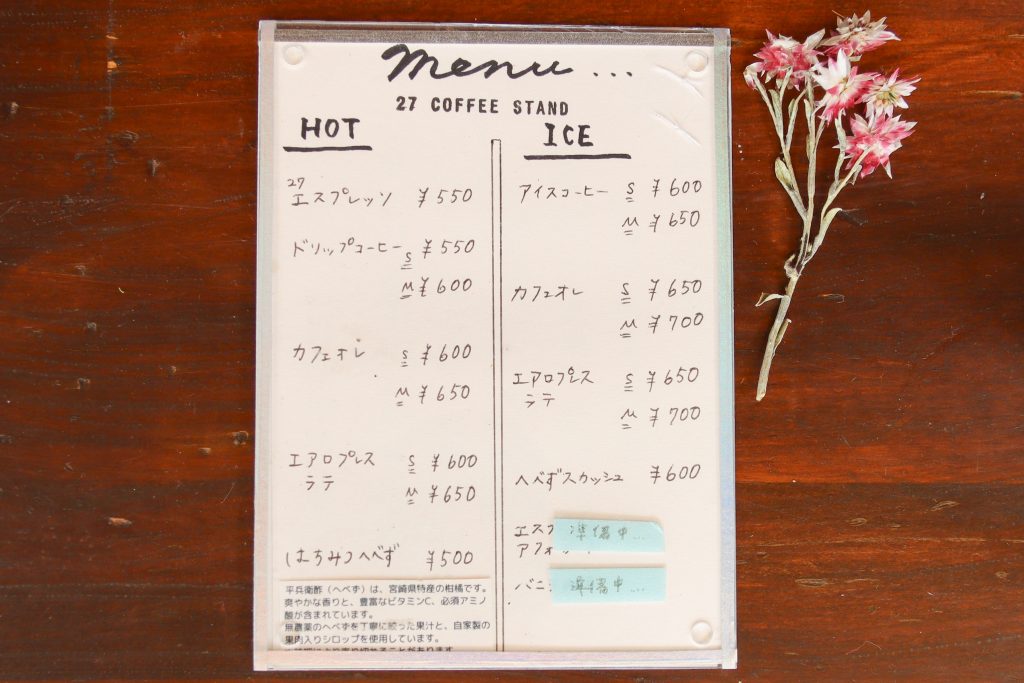 menu...
27 COFFEE STAND
HOT
27
エスプレッソ ¥550
ドリップコーヒー S ¥550
M ¥600
カフェオレ S ¥600
M ¥650
エアロプレス S ¥600
ラテ
M ¥650
はちみつへべず ¥500
平兵衛酢(へべず)は、宮崎県特産の柑橘です。
爽やかな香りと、豊富なビタミンC、必須アミノ
酸が含まれています。
無農薬のへべずを丁寧に絞った果汁と、自家製の
果肉入りシロップを使用しています。
ICE
アイスコーヒー S ¥600
M ¥650
カフェオレ S ¥650
M ¥700
エアロプレス S ¥650
ラテ
M ¥700
へべずスカッシュ ¥600
エスプ 準備中...
アフォ
バニ 準備中...